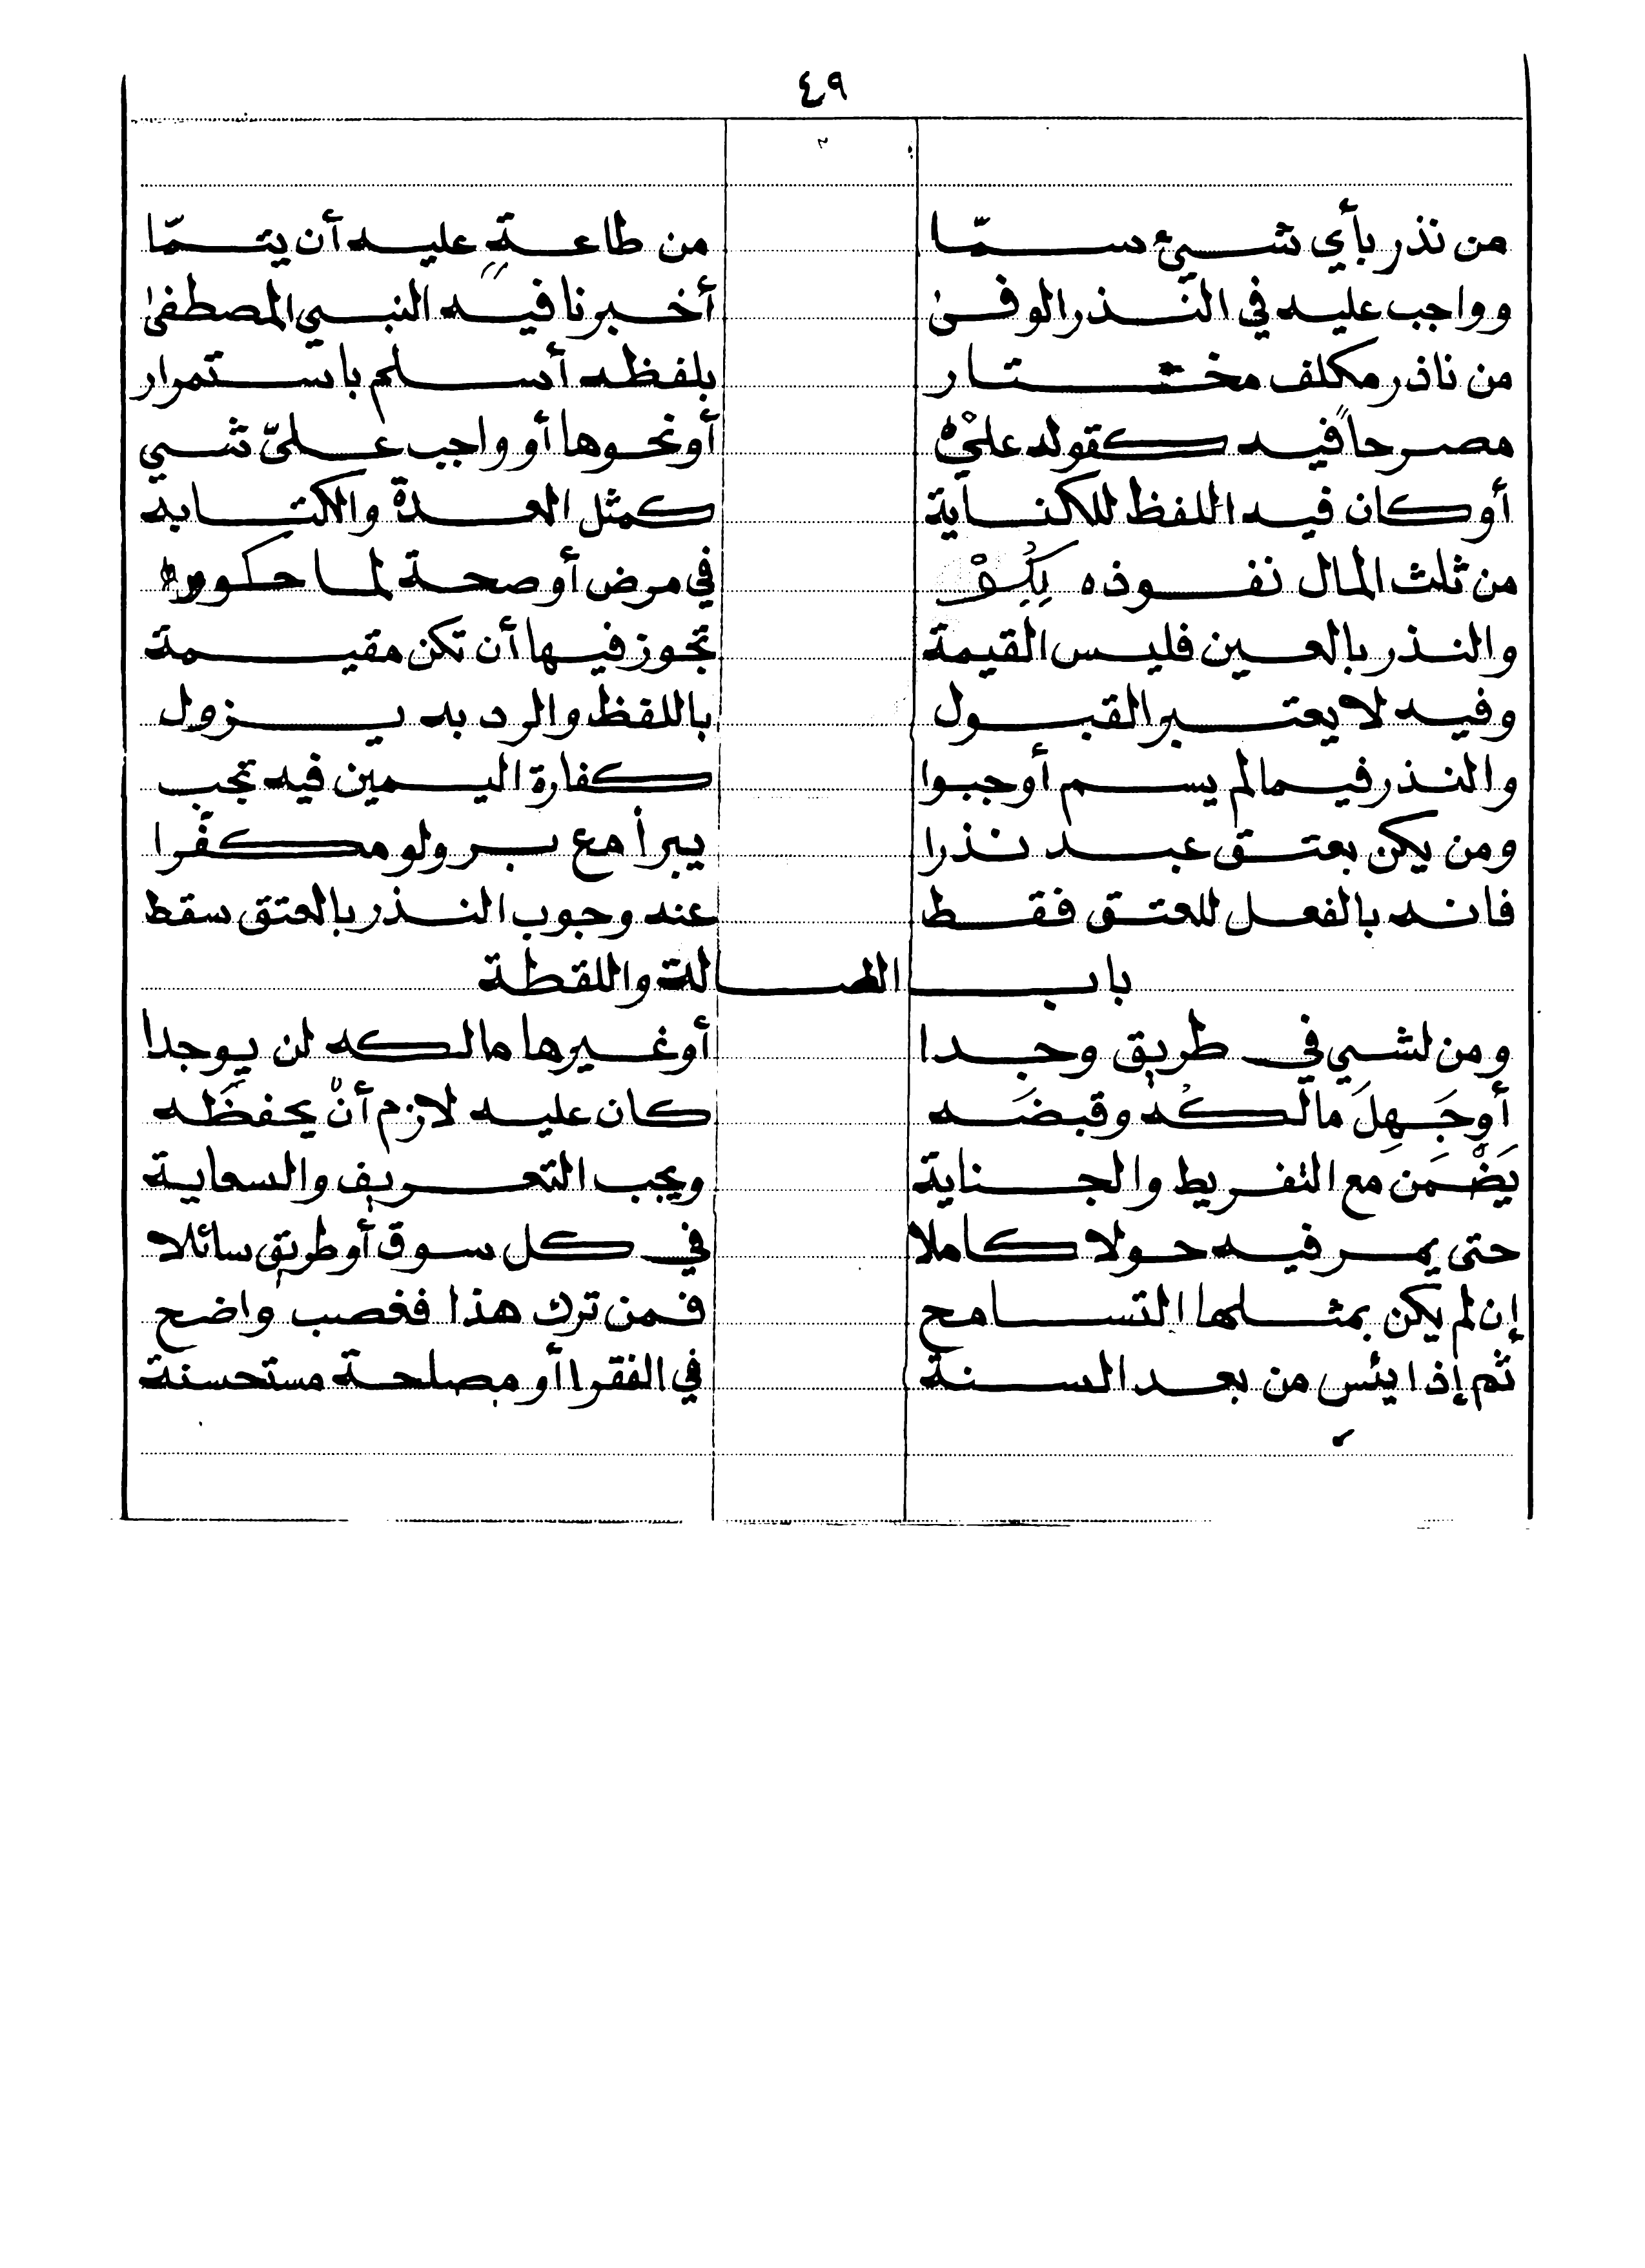 ٤٩
من نذر بأي شيئ سمّا من طاعةٍ عليه أن يتمّا
وواجب عليه في النذر الوفى أخبرنا فيه النبي المصطفى
من ناذر مكلف مختار بلفظه أسلم باستمرار
مصرحاً فيه كقوله عليْ أو نحوها أو واجب عليّ شيي
أو كان فيه اللفظ للكناية كمثل العدة والكتابه
من ثلث المال نفوذه في مرض أو صحة لما حكوه
والنذر بالعين فليس القيمة تجوز فيها أن تكن مقيمة
وفيه لا يعتبر القبول باللفظ والرد به يزول
والنذر فيما لم يسم أوجبوا كفارة اليمين فيه تجب
ومن يكن بعتق عبد نذرا يبرأ مع بر ولو مكفّرا
فانه بالفعل للعتق فقط عنه وجوب النذر بالعتق سقط
باب الضالة واللقطة
ومن لشيي في طريق وجدا أو غيرها مالكه لن يوجدا
أو جَهِلَ مالكُه وقبضَه كان عليه لازم أنْ يحفظَه
يَضْمَن مع التفريط والجناية ويجب التعريف والسعاية
حتى يمر فيه حولا كاملا في كل سوق أو طريق سائلا
إن لم يكن بمثلها التسامح فمن ترك هذا فغصب واضح
ثم إذا يئس من بعد السنة في الفقرا أو مصلحة مستحسنة